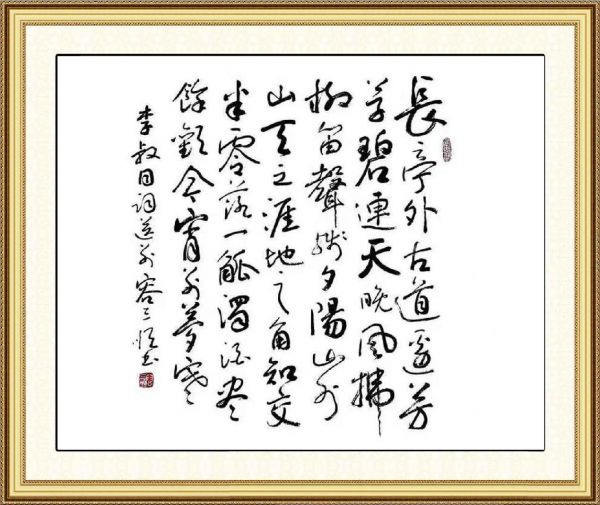 長亭外古道邊芳
草碧連天晚風拂
柳笛聲殘夕陽山外
山天之涯地之角知交
半零落一觚濁酒盡
餘歡今宵別夢寒
李叔同詞送別 書